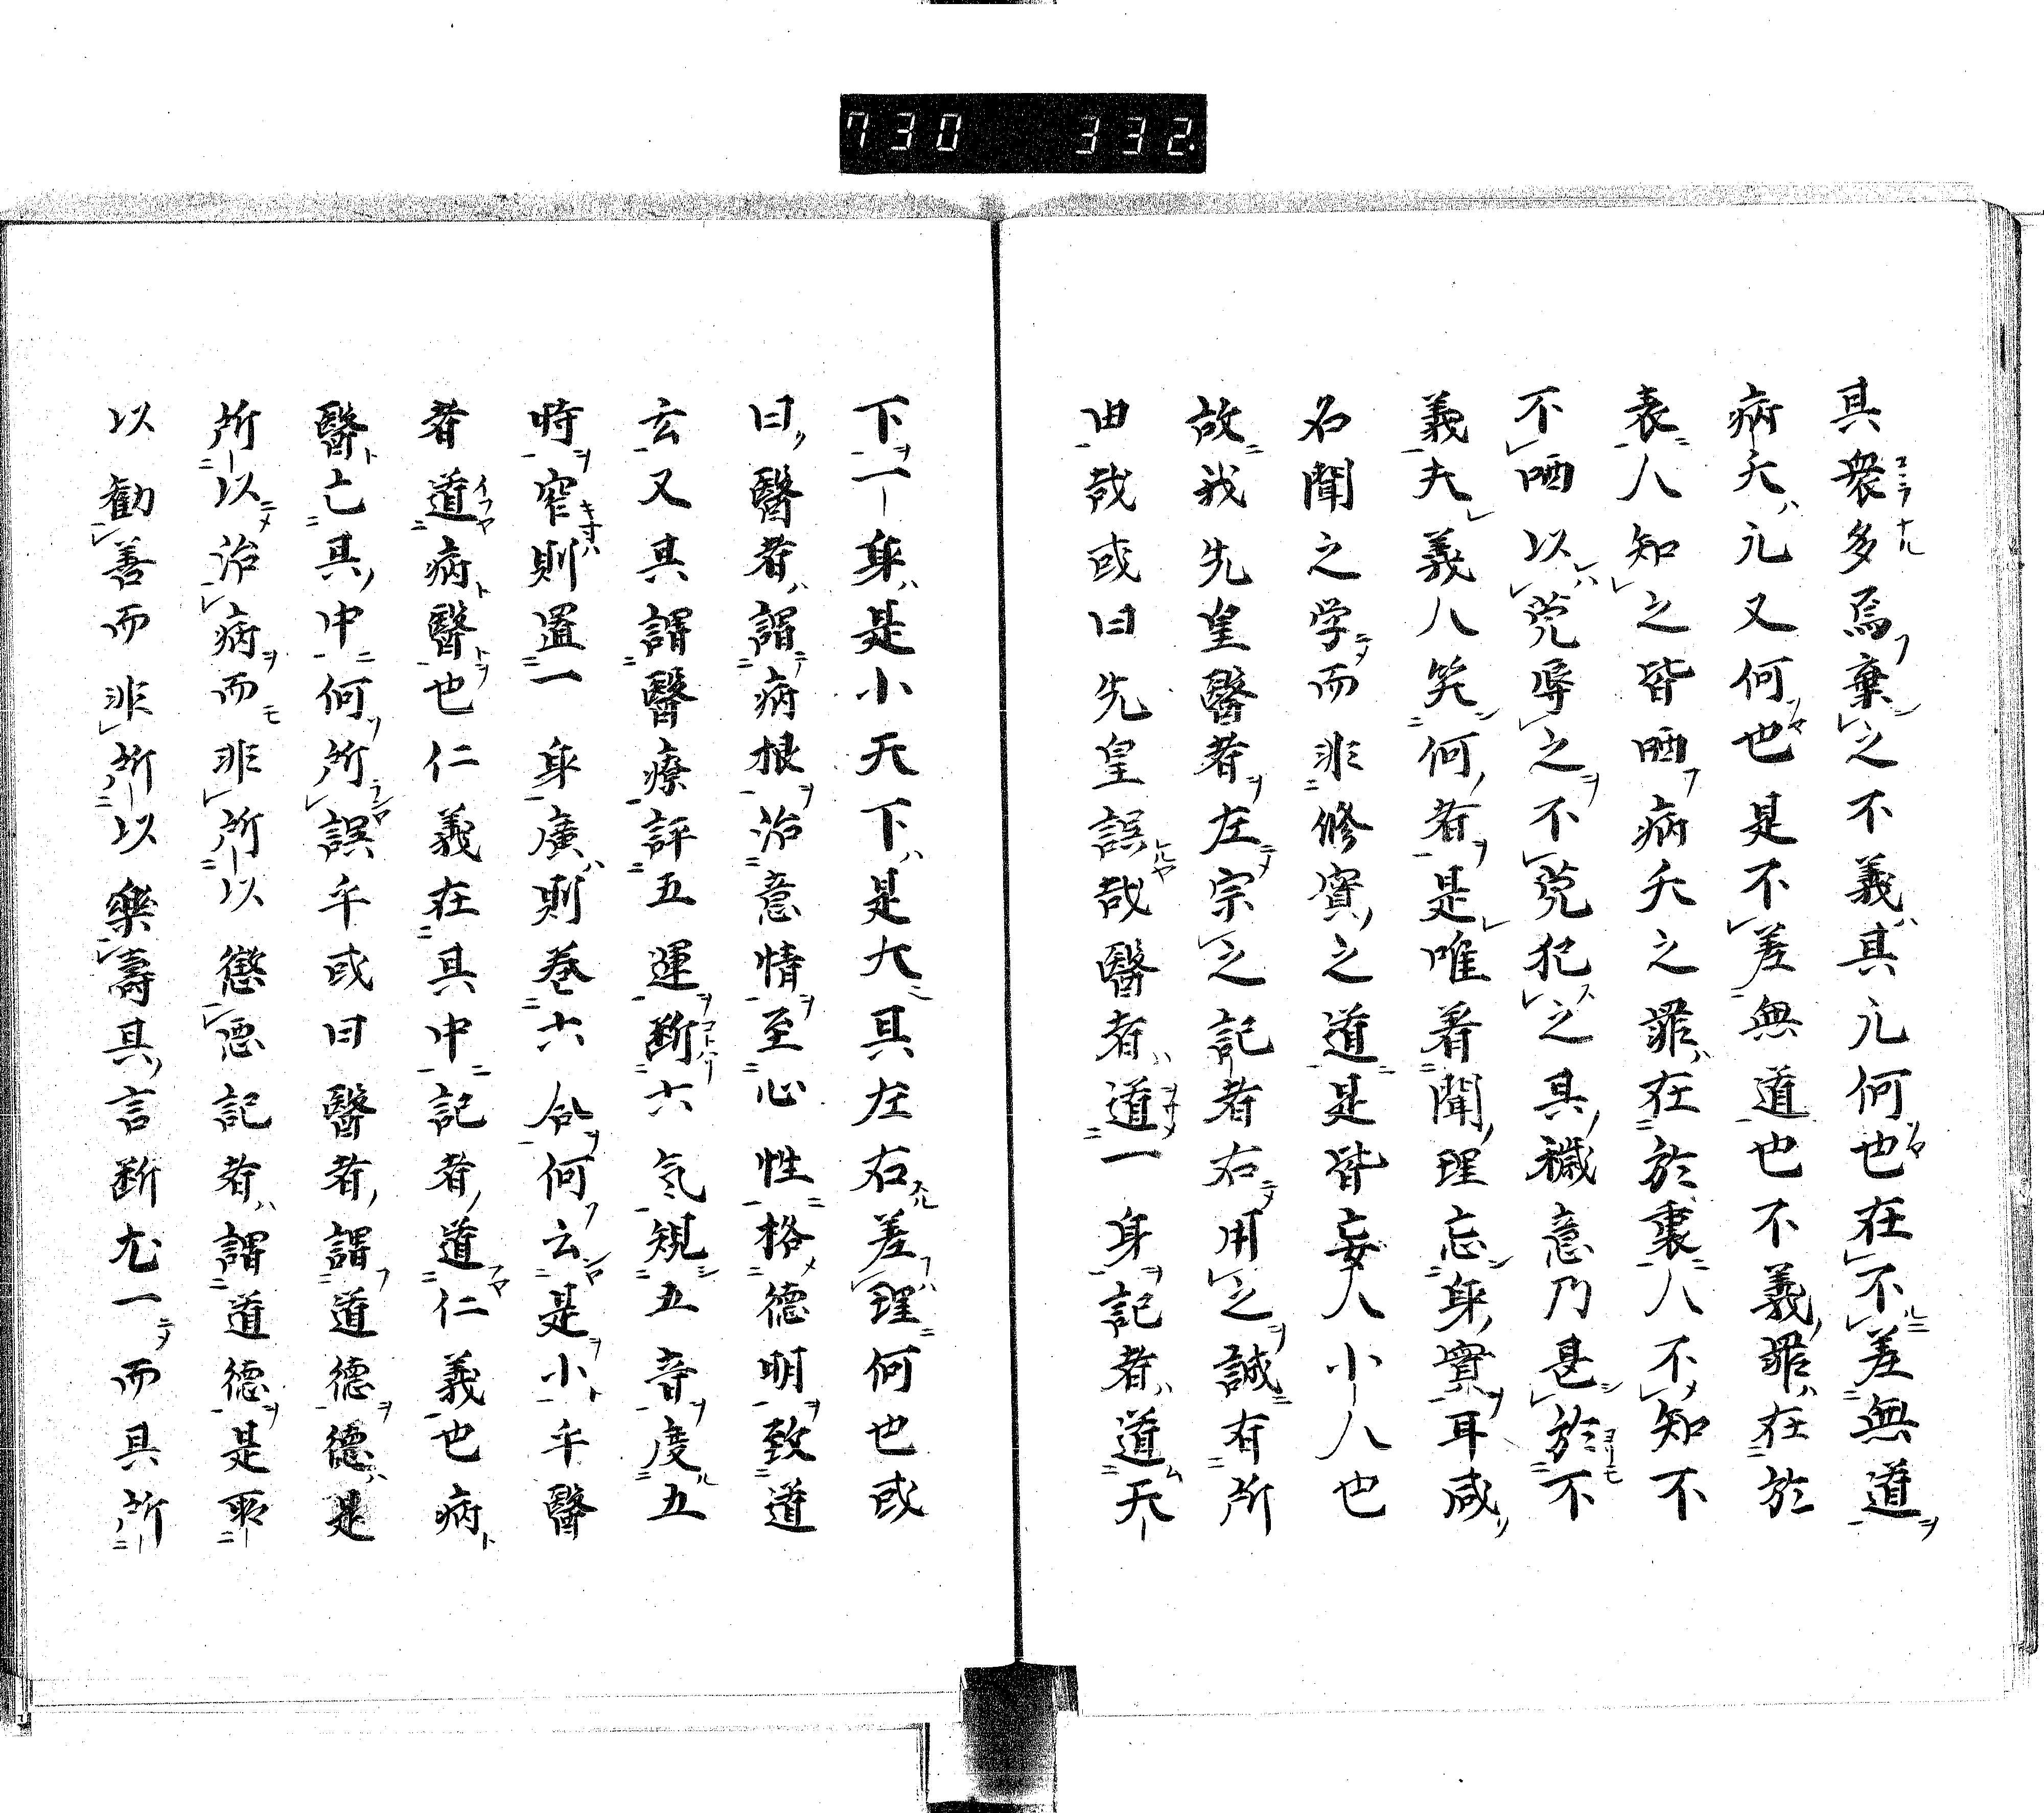 730 332
其衆多焉棄之不義其元何也在不差無道
病夭元又何也是不差無道也不義罪在於
表人知之皆哂病夭之罪在於裏人不知不
不哂以兇辱之不兇犯之其穢意乃甚於不
義夫義人笑何者是唯着聞理忘身實耳咸
名聞之学而非修實之道是皆妄人小人也
故我先皇醫者左宗之記者右用之誠有所
由哉或曰先皇誤哉醫者道一身記者道天
下一身是小天下是大其左右差理何也或
曰醫者謂病根治意情至心性格德明致道
玄又其謂醫療評五運断六気規五音度五
時窄則置一身廣則巻六合何云是小乎醫
者道病醫也仁義在其中記者道仁義也病
醫亡其中何所誤乎或曰醫者謂道德德是
所以治病而非所以懲悪記者謂道德是耶
以勧善而非所以樂壽其言断尤一而其所